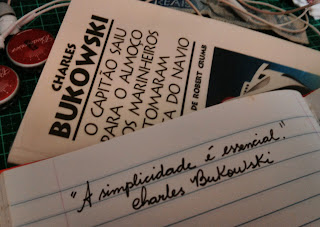 CHARLES
BUKOWSKI
O CAPITÃO SAIU
PARA O ALMOÇO
OS MARINHEIROS
TOMARAM
DO NAVIO
DE ROBERT CRUMB
"A simplicidade é essencial."
Charles Bukowski